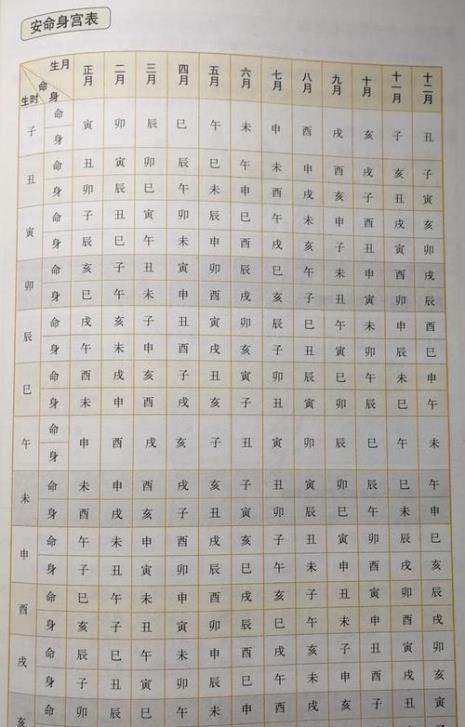 安命身宫表
生月 命 身 生时 正月 二月 三月 四月 五月 六月 七月 八月 九月 十月 十一月 十二月
子 命 身 寅 卯 辰 巳 午 未 申 酉 戌 亥 子 丑
丑 命 丑 寅 卯 辰 巳 午 未 申 酉 戌 亥 子
身 卯 辰 巳 午 未 申 酉 戌 亥 子 丑 寅
寅 命 子 丑 寅 卯 辰 巳 午 未 申 酉 戌 亥
身 辰 巳 午 未 申 酉 戌 亥 子 丑 寅 卯
卯 命 亥 子 丑 寅 卯 辰 巳 午 未 申 酉 戌
身 巳 午 未 申 酉 戌 亥 子 丑 寅 卯 辰
辰 命 戌 亥 子 丑 寅 卯 辰 巳 午 未 申 酉
身 午 未 申 酉 戌 亥 子 丑 寅 卯 辰 巳
巳 命 酉 戌 亥 子 丑 寅 卯 辰 巳 午 未 申
身 未 申 酉 戌 亥 子 丑 寅 卯 辰 巳 午
午 命 身 申 酉 戌 亥 子 丑 寅 卯 辰 巳 午 未
未 命 未 申 酉 戌 亥 子 丑 寅 卯 辰 巳 午
身 酉 戌 亥 子 丑 寅 卯 辰 巳 午 未 申
申 命 午 未 申 酉 戌 亥 子 丑 寅 卯 辰 巳
身 子 丑 寅 卯 辰 巳 午 未 申 酉 戌 亥
酉 命 巳 午 未 申 酉 戌 亥 子 丑 寅 卯 辰
身 亥 子 丑 寅 卯 辰 巳 午 未 申 酉 戌
戌 命 辰 巳 午 未 申 酉 戌 亥 子 丑 寅 卯
身 子 丑 寅 卯 辰 巳 午 未 申 酉 戌 亥
亥 命 卯 辰 巳 午 未 申 酉 戌 亥 子 丑 寅